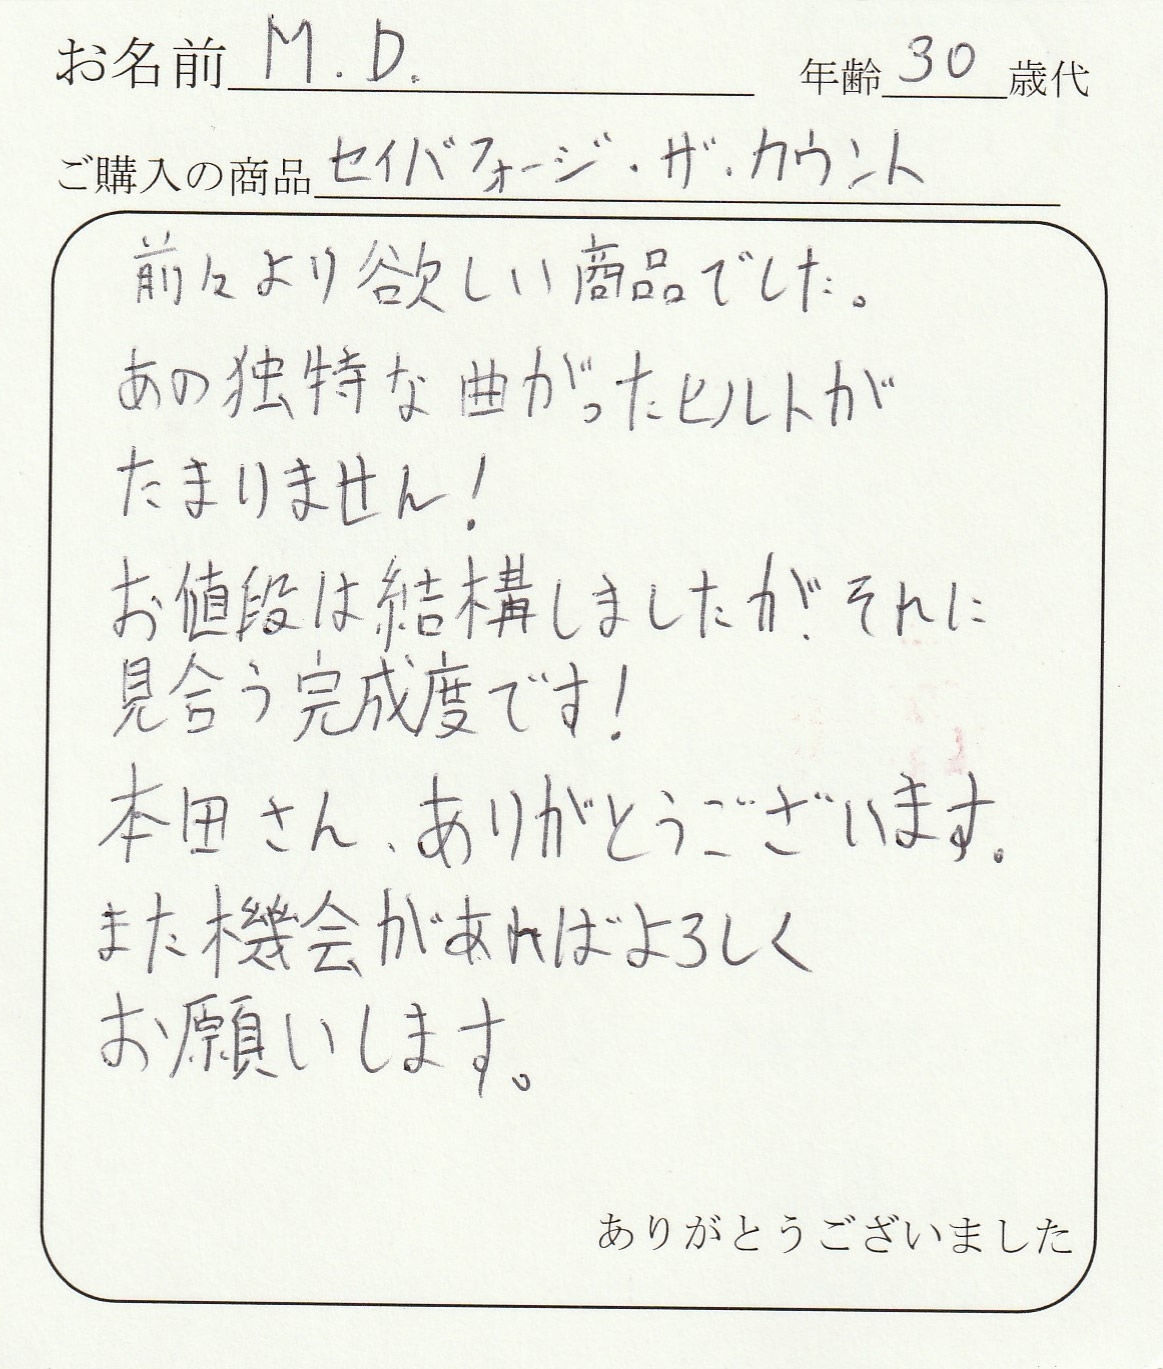 お名前 M.D. 年齢 30 歳代
ご購入の商品 セイバフォージ・ザ・カウント
前々より欲しい商品でした。
あの独特な曲がったヒルトが
たまりません!
お値段は結構しましたが、それに
見合う完成度です!
本田さん、ありがとうございます。
また機会があればよろしく
お願いします。
ありがとうございました